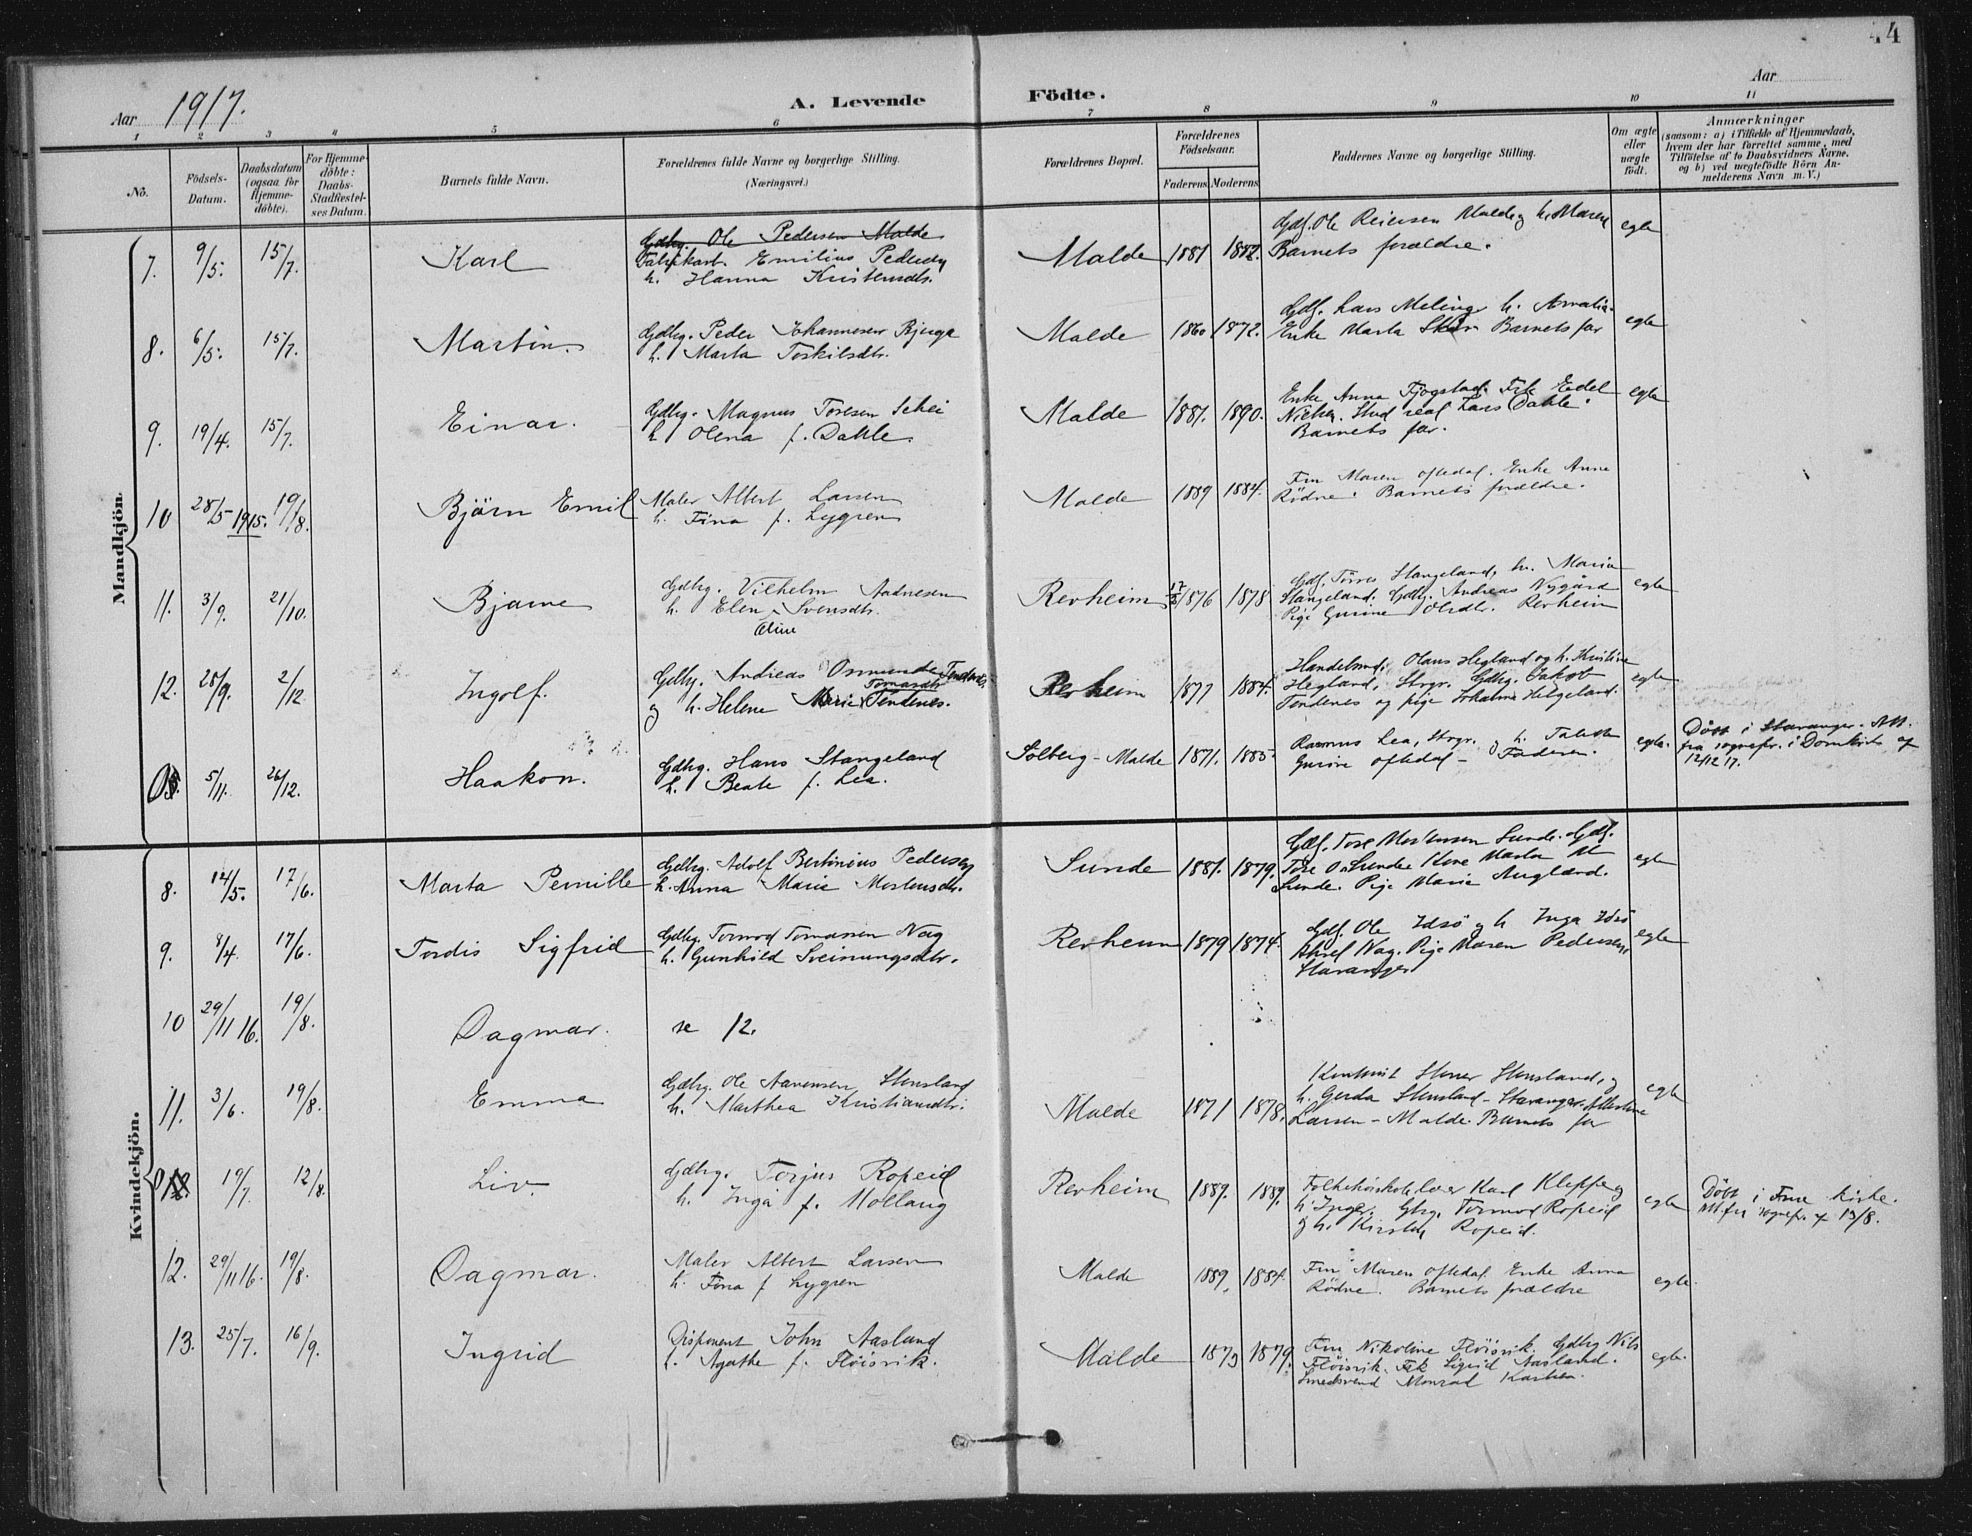 44
Aar 1917.
A. Levende Födte.
Aar
1 2 3 4 5 6 7 8 9 10 11
Nö.
Födsels-Datum.
Daabsdatum (ogsaa for Hjemme-døbte).
For Hjemme-döbte: Daabs-Stadfæstel-ses Datum.
Barnets fulde Navn.
Forældrenes fulde Navne og borgerlige Stilling.
(Næringsvei.)
Forældrenes Bopæl.
Forældrenes Födselsaar.
Faderens Moderens
Faddernes Navne og borgerlige Stilling.
Om ægte eller uægte født.
Anmærkninger
(saasom: a) i Tilfælde af Hjemmedaab, hvem der har forrettet samme, med Tilføielse af to Daabsvidners Navne, og b) ved uægtefödte Börn An-melderens Navn m. V.)
Mandkjön.
7. 9/5. 15/7. Karl
Gdbg. Ole Pedersen Malde
Fabrikarb. Emilius Pedersen
h. Hanna Kristensdtr.
Malde 1881 1882.
Gdf. Ole Reiersen Malde og h. Maren
Barnets forældre.
egte
8. 6/5. 15/7. Martin.
Gdbg. Peder Johannesen Bjerga
h. Marta Torkilsdtr.
Malde 1860 1872.
Gdf. Lars Meling h. Amalia.
Enke Marta Barnets far
egte
9. 19/4. 15/7. Einar.
Gdbg. Magnus Toresen Schei
h. Olena f. Dahle
Malde 1881. 1890.
Enke Anna Fjogstad. Frk Eidel
Stud real Lars Dahle.
Barnets far.
egte
10 28/5 1915. 19/8. Björn Emil
Maler Albert Larsen
h. Fina f. Lygren
Malde 1889 1884.
Fru Maren Oftedal. Enke Anna
Rödne. Barnets forældre.
11. 3/9. 21/10. Bjarne
Gdbg. Vilhelm Aadnesen
h. Elen Svensdtr.
Eline
Revheim 17/2 1876 1878
Gdf. Törres Stangeland, h. Maria
Stangeland. Gdbg. Andreas Nygård
Pige Gurine Olsdtr. Revheim
egte
12. 28/9. 2/12. Ingolf.
Gdbg. Andreas Osmundsen Tendenes.
Tomasdtr.
og h. Helene Marie Tendenes.
Revheim 1877 1884.
Handelsmd. Olaus Hegland og h. Kristine
Hegland, Stvgr. Gdbg. Jakob
Tendenes og pige Johanne Helgeland.
egte
5/11. 26/12. Haakon.
Gdbg. Hans Stangeland
h. Beate f. Lea.
Solberg - Malde 1871. 1885
Rasmus Lea, Stvgr. og h. Tabitha
Gurine Oftedal - Faderen.
egte.
Döbt i Stavanger. Att.
fra sognepr. i Domkirk. af
12/12 17.
Kvindekjön.
8. 14/5. 17/6. Marta Pernille
Gdbg. Adolf Bertinius Pedersen
h. Anna Marie Mortensdtr.
Sunde 1881. 1879.
Gdf. Tore Mortensen Sunde. Gdf.
Tore O. Sunde Kone Marta M
Sunde. Pige Marie Auglænd.
egte
9. 8/4. 17/6. Tordis Sigfrid
Gdbg. Tormod Tomassen Nag
h. Gunhild Sveinungsdtr.
Revheim 1879 1874.
Gdf. Ole Idsö og h Inga Idsö
Aksel Nag. Pige Maren Pedersen,
Stavanger
egte
10 29/11 16. 19/8. Dagmar.
se 12.
11. 3/6. 19/8. Emma
Gdbg. Ole Aanensen Stensland
h. Marthea Kristiansdtr.
Malde 1871 1878.
Stensland, og
h. Gerda Stensland - Stavanger.
Larsen - Malde. Barnets far
egte
19/7. 12/8. Liv.
Gdbg. Torjus Ropeid
h. Inga f. Molaug
Revheim 1889. 1889.
Folkehöiskolelærer Karl Kleppe og
h. Inger. Gbg. Tormod Ropeid
og h. Kirsten Ropeid.
egte
Döbt i Frue kirke.
Att fra sognepr. af 13/8.
12. 29/11 16. 19/8. Dagmar.
Maler Albert Larsen
h. Fina f Lygren
Malde 1889. 1884.
Fru Maren Oftedal. Enke Anna
Rödne. Barnets forældre
egte.
13. 25/7. 16/9. Ingrid
Disponent John Aasland
h. Agathe f. Flöisvik.
Malde 1873 1879.
Fru Nikoline Flöisvik. Gdbg Nils
Flöisvik. Frk Sigrid Aasland.
Smedsvend Monrad
egte.